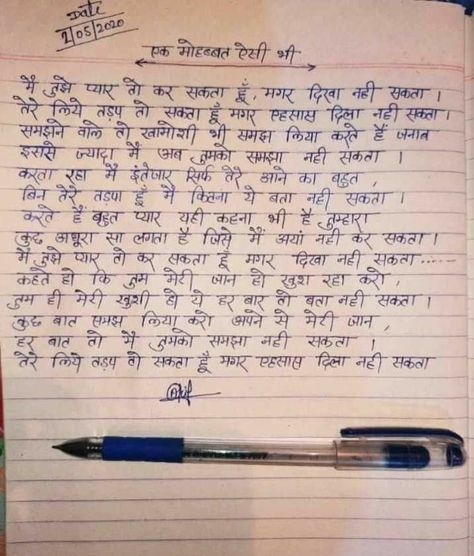 Date
2/05/2020
एक मोहब्बत ऐसी भी
मै तुझे प्यार तो कर सकता हूँ, मगर दिखा नही सकता ।
तेरे लिये तड़प तो सकता हूँ मगर एहसास दिला नही सकता ।
समझने वाले तो खामोशी भी समझ लिया करते हैं जनाब
इससे ज्यादा मैं अब तुमको समझा नही सकता ।
करता रहा मैं इंतेजार सिर्फ तेरे आने का बहुत,
बिन तेरे तड़पा हूँ मै कितना ये बता नही सकता ।
करते हैं बहुत प्यार यही कहना भी है तुम्हारा
कुछ अधूरा सा लगता है जिसे मैं अयां नही कर सकता ।
मै तुझे प्यार तो कर सकता हूँ मगर दिखा नही सकता ......
कहते हो कि तुम मेरी जान हो खुश रहा करो,
तुम ही मेरी खुशी हो ये हर बार तो बता नही सकता ।
कुछ बात समझ लिया करो अपने से मेरी जान,
हर बात तो मैं तुमको समझा नही सकता ।
तेरे लिये तड़प तो सकता हूँ मगर एहसास दिला नही सकता